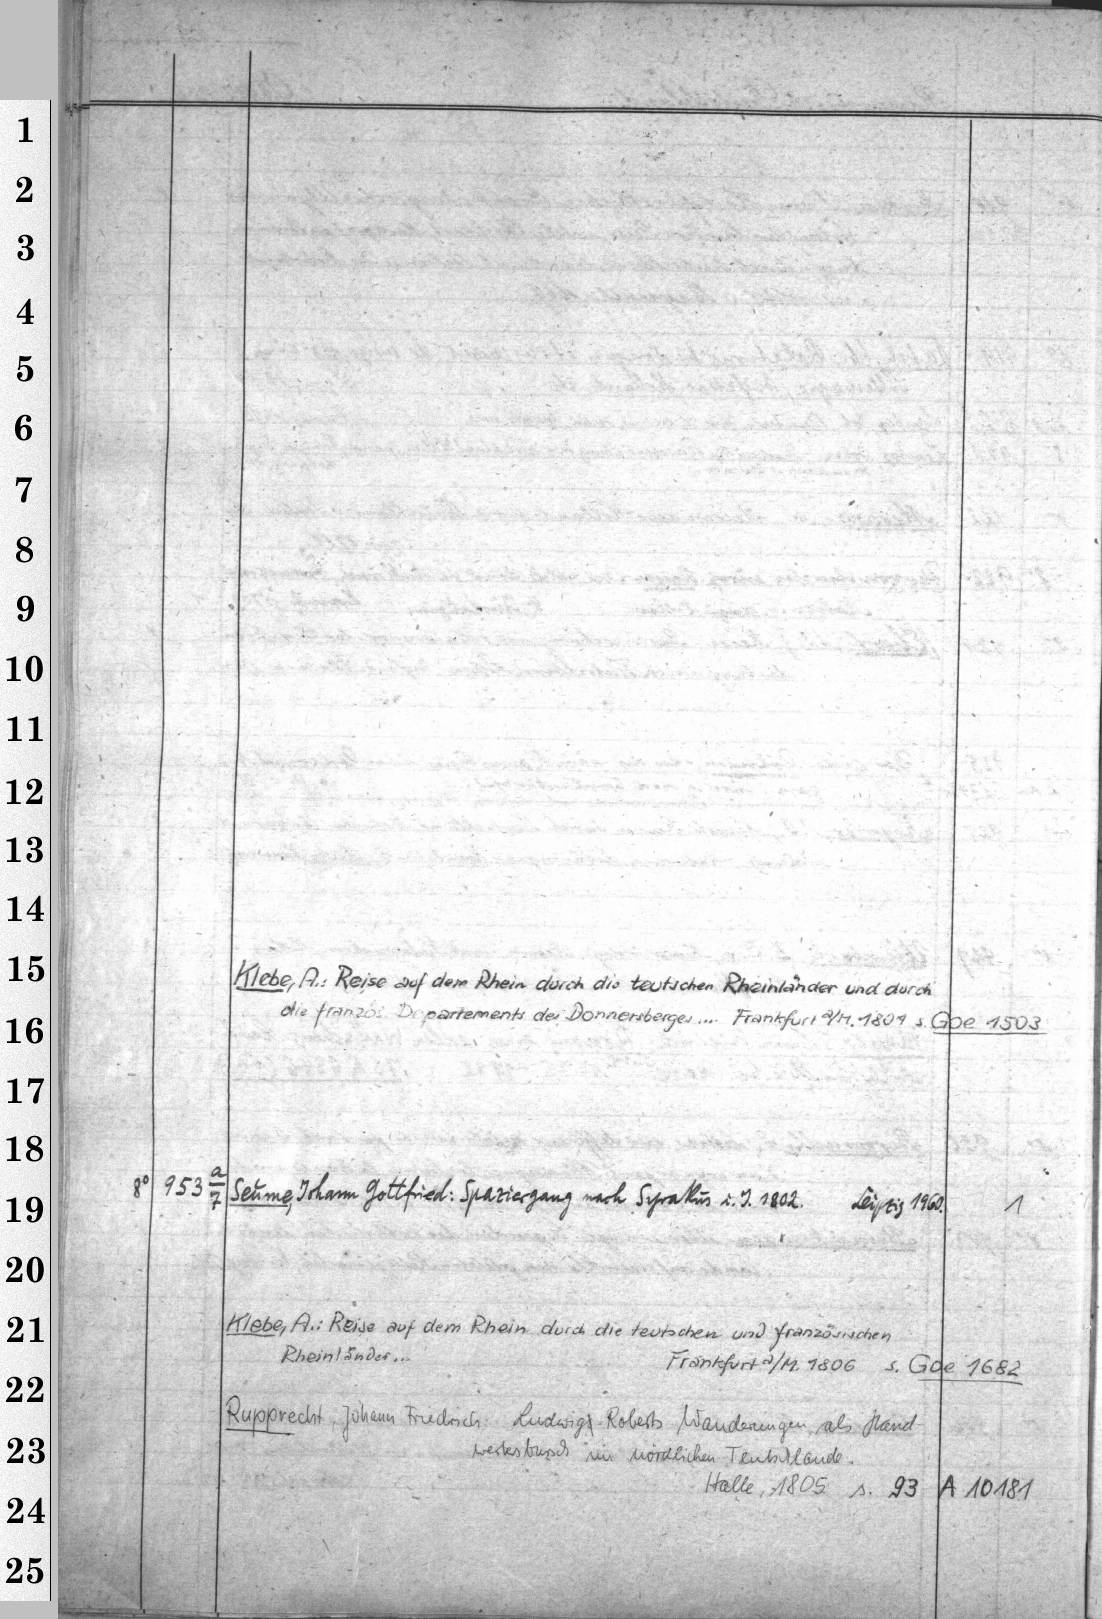 1
2
3
4
5
6
7
8
9
10
11
12
13
14
15
16
17
18
19
20
21
22
23
24
25
Klebe, A.: Reise auf dem Rhein durch die teutschen Rheinländer und durch
die französ. Departements des Donnersberges... Frankfurt a/M. 1801 s. Goe 1503
8° 953 a/7 Seume, Johann Gottfried: Spaziergang nach Syrakus i. J. 1802. Leipzig 1960. 1
Klebe, A.: Reise auf dem Rhein durch die teutschen und französischen
Rheinländer... Frankfurt a/M. 1806 s. Goe 1682
Rupprecht, Johann Friedrich: Ludwig Roberts Wanderungen als Hand
werksbursch im nördlichen Teutschlande.
Halle, 1805 s. 93 A 10181